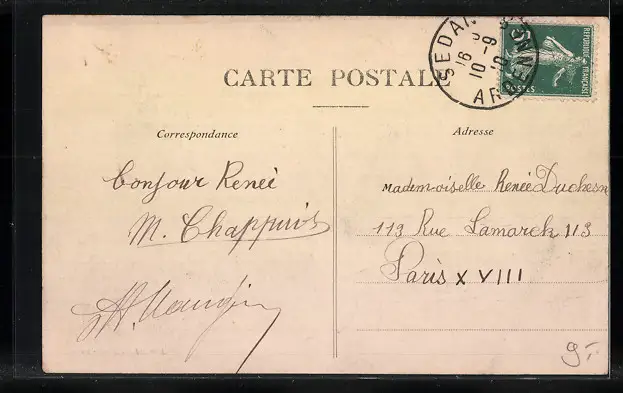 CARTE POSTALE
SEDAN
10-9
10
ARDENNES
5
REPUBLIQUE FRANÇAISE
POSTES
Correspondance
Adresse
Bonjour Renée
M. Chappuis
Mademoiselle Renée Duchesn
113 Rue Lamarck 113
Paris XVIII
9.-